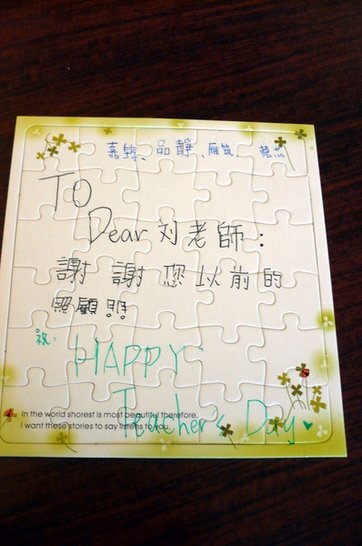 品靜、雁筑、
TO
Dear 刘老師：
謝 謝 您 以前的
照顧!!!
祝：
HAPPY
Teacher's Day ♥
In the world shorest is most beautiful therefore,
I want these stories to say listens to you